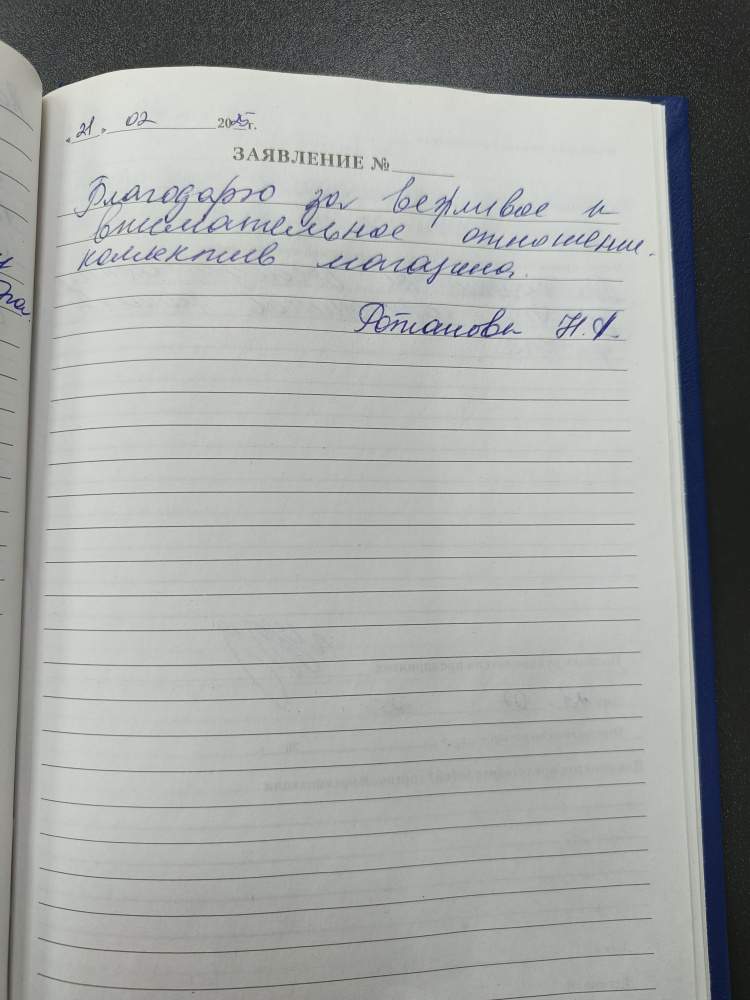 «21» 02 2025г.
ЗАЯВЛЕНИЕ №
Благодарю за вежливое и
внимательное отношение
коллектив магазина.
Н.А.